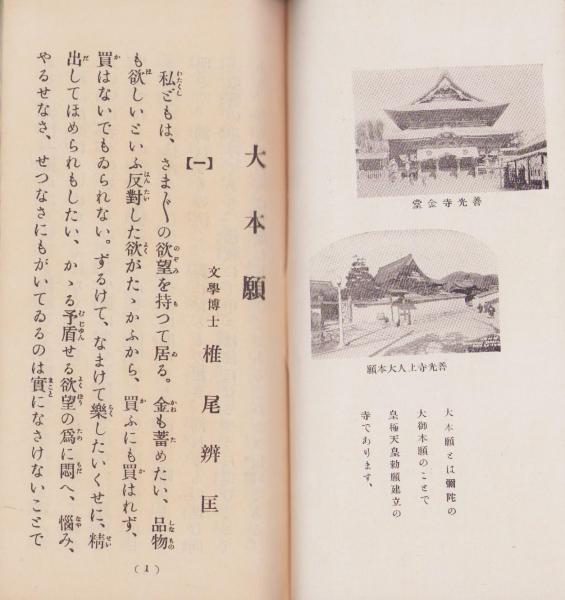 善光寺金堂
善光寺上人大本願
大本願とは彌陀の
大御本願のことで
皇極天皇勅願建立の
寺であります、
大本願
【一】
文學博士 椎尾辨匡
私どもは、さま〴〵の欲望を持つて居る。金も蓄めたい、品物
も欲しいといふ反對した欲がたゝかふから、買ふにも買はれず、
買はないでもゐられない。ずるけて、なまけて樂したいくせに、精
出してほめられもしたい、かゝる予盾せる欲望の爲に悶へ、惱み、
やるせなさ、せつなさにもがいてゐるのは實になさけないことで
(1)